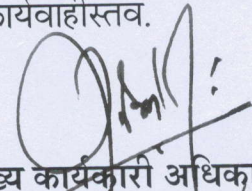 कार्यवाहीस्तव.
ख्य कार्यकारी अधिक